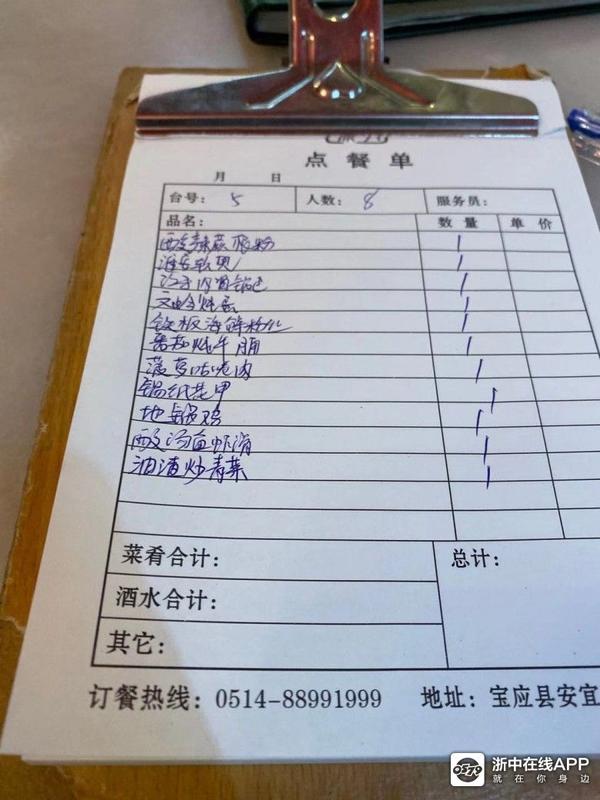 点餐单
月 日
台号: 5 人数: 8 服务员:
品名: 数量 单价
酸辣蕨根粉 1
1
1
1
铁板海鲜粉丝 1
番茄炖牛腩 1
菠萝咕咾肉 1
锡纸花甲 1
地锅鸡 1
酸汤鱼虾滑 1
油渣炒青菜 1
菜肴合计: 总计:
酒水合计:
其它:
订餐热线: 0514-88991999 地址: 宝应县安宜
浙中在线APP
就在你身边